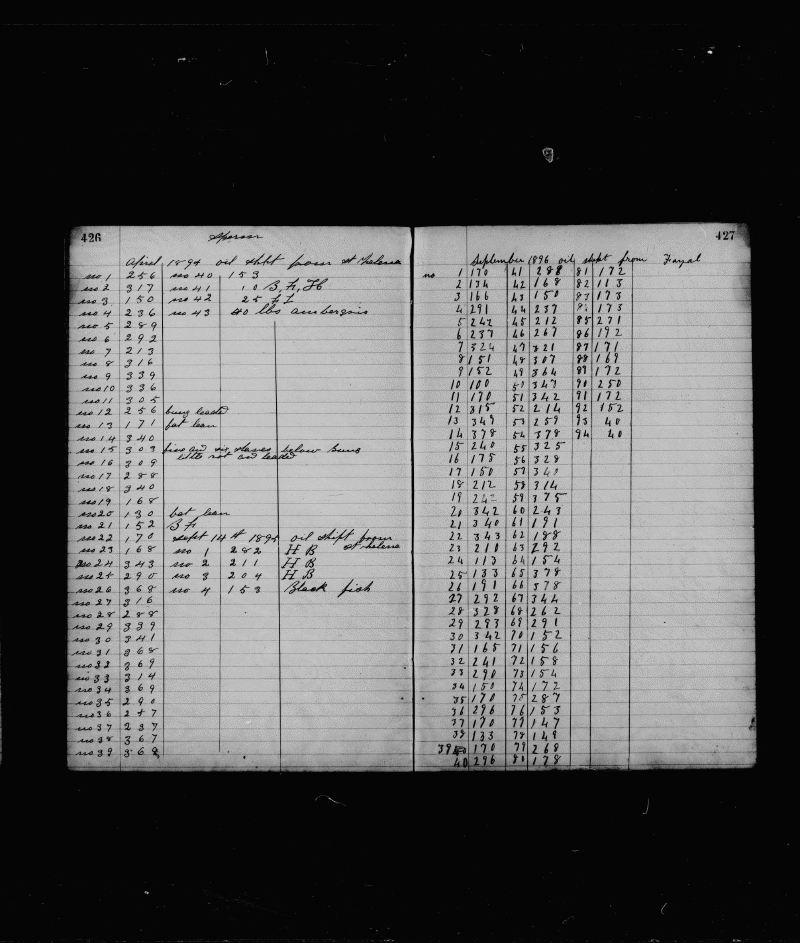 426
Sperm
April 1894 oil shipt from St Helena
no 1 256 no 40 153
no 2 317 no 41 10 B, F, H
no 3 150 no 42 25
no 4 236 no 43 40 lbs ambergris
no 5 289
no 6 292
no 7 213
no 8 316
no 9 339
no 10 336
no 11 305
no 12 256 bung leaked
no 13 171 fat lean
no 14 340
no 15 303 five and six staves below bung
little rot and leaked
no 16 309
no 17 288
no 18 340
no 19 168
no 20 130 fat lean
no 21 152 B F
no 22 170 Sept 14th 1895 oil shipt from
St Helena
no 23 168 no 1 282 H B
no 24 343 no 2 211 H B
no 25 290 no 3 204 H B
no 26 368 no 4 153 Black fish
no 27 316
no 28 288
no 29 339
no 30 341
no 31 368
no 32 369
no 33 314
no 34 369
no 35 290
no 36 247
no 37 237
no 38 367
no 39 368
427
September 1896 oil shipt from Fayal
no 1 170 41 288 81 172
2 134 42 168 82 113
3 166 43 150 83 173
4 291 44 237 84 173
5 242 45 212 85 271
6 237 46 267 86 192
7 324 47 321 87 171
8 151 48 307 88 169
9 152 49 364 89 172
10 100 50 347 90 250
11 170 51 342 91 172
12 315 52 214 92 152
13 349 53 259 93 40
14 378 54 378 94 40
15 240 55 325
16 175 56 328
17 150 57 340
18 212 58 314
19 242 59 375
20 342 60 243
21 340 61 191
22 343 62 188
23 210 63 292
24 113 64 154
25 133 65 378
26 191 66 378
27 292 67 344
28 328 68 262
29 293 69 291
30 342 70 152
31 165 71 156
32 241 72 158
33 290 73 154
34 150 74 172
35 170 75 287
36 296 76 153
37 170 77 147
38 133 78 149
39 170 79 268
40 296 80 178